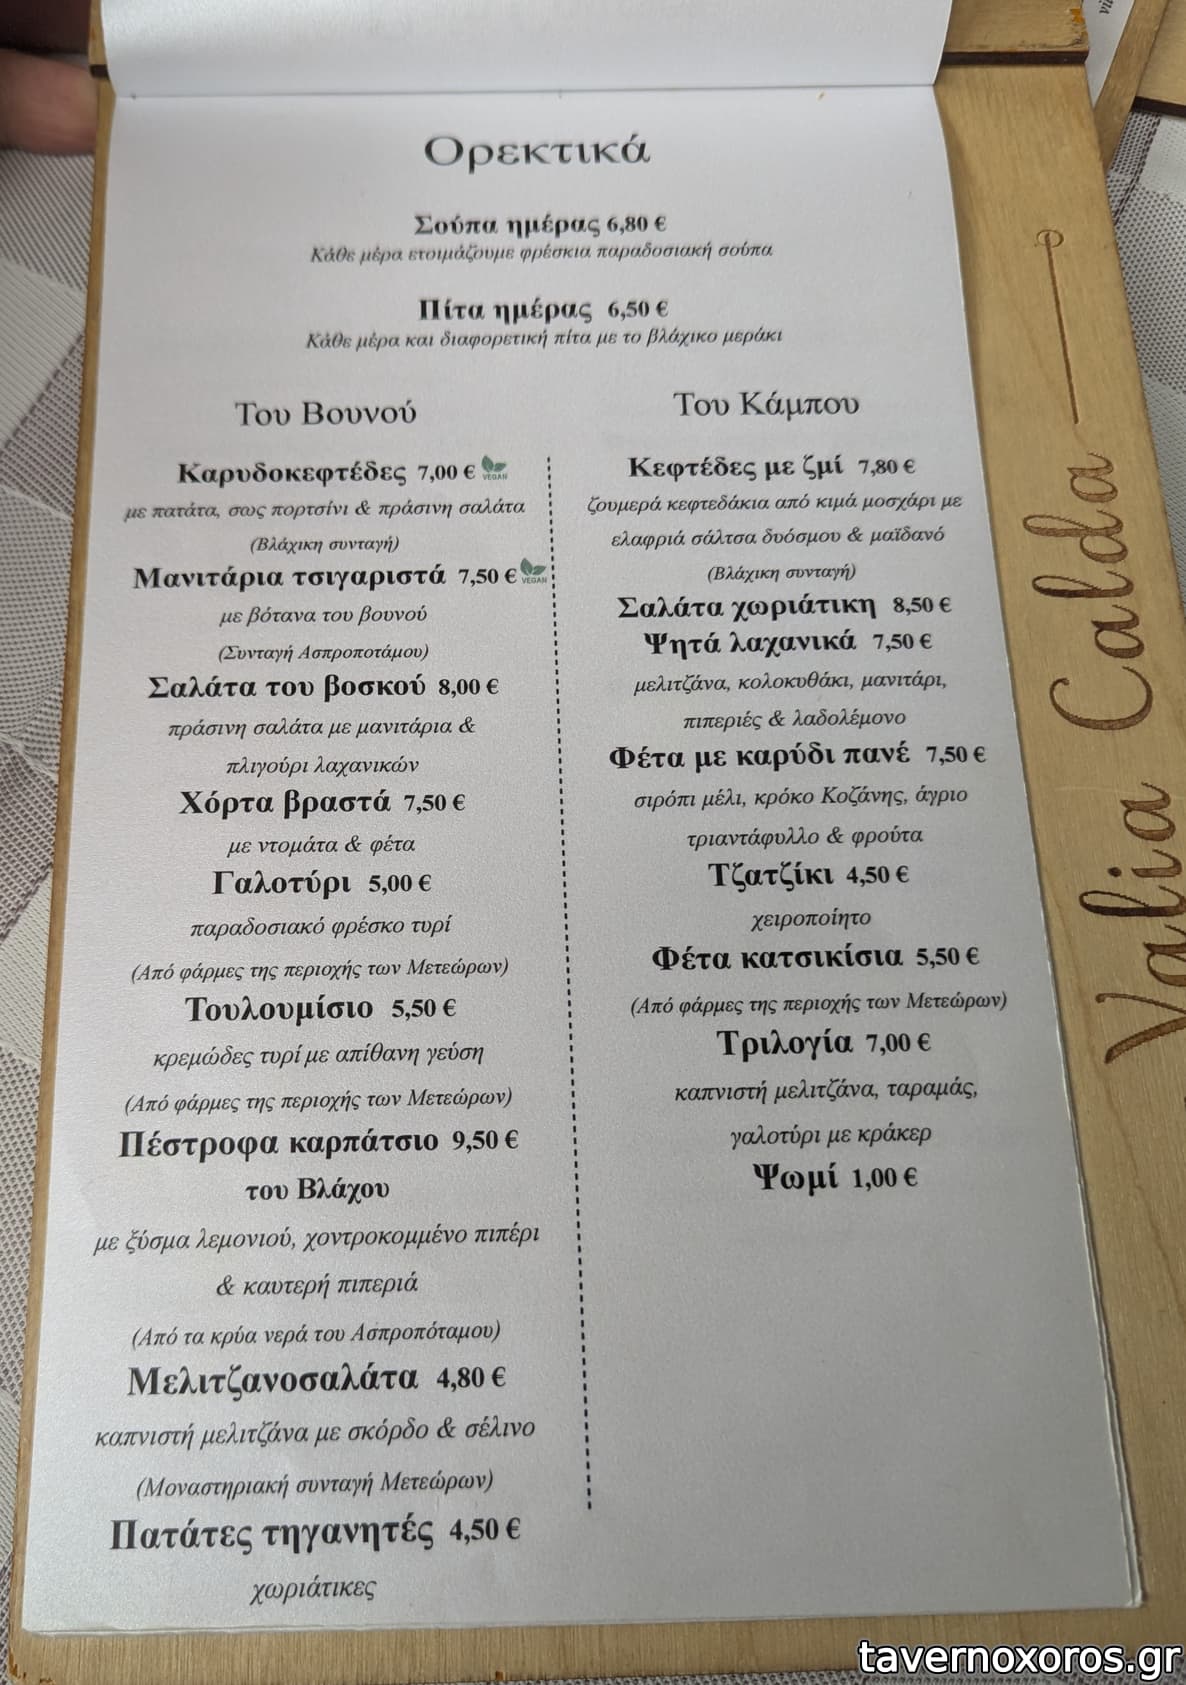 Ορεκτικά
Σούπα ημέρας 6,80 €
Κάθε μέρα ετοιμάζουμε φρέσκια παραδοσιακή σούπα
Πίτα ημέρας 6,50 €
Κάθε μέρα και διαφορετική πίτα με το βλάχικο μεράκι
Του Βουνού
Καρυδοκεφτέδες 7,00 € VEGAN
με πατάτα, σως πορτσίνι & πράσινη σαλάτα
(Βλάχικη συνταγή)
Μανιτάρια τσιγαριστά 7,50 € VEGAN
με βότανα του βουνού
(Συνταγή Ασπροποτάμου)
Σαλάτα του βοσκού 8,00 €
πράσινη σαλάτα με μανιτάρια &
πλιγούρι λαχανικών
Χόρτα βραστά 7,50 €
με ντομάτα & φέτα
Γαλοτύρι 5,00 €
παραδοσιακό φρέσκο τυρί
(Από φάρμες της περιοχής των Μετεώρων)
Τουλουμίσιο 5,50 €
κρεμώδες τυρί με απίθανη γεύση
(Από φάρμες της περιοχής των Μετεώρων)
Πέστροφα καρπάτσιο 9,50 €
του Βλάχου
με ξύσμα λεμονιού, χοντροκομμένο πιπέρι
& καυτερή πιπεριά
(Από τα κρύα νερά του Ασπροπόταμου)
Μελιτζανοσαλάτα 4,80 €
καπνιστή μελιτζάνα με σκόρδο & σέλινο
(Μοναστηριακή συνταγή Μετεώρων)
Πατάτες τηγανητές 4,50 €
χωριάτικες
Του Κάμπου
Κεφτέδες με ζμί 7,80 €
ζουμερά κεφτεδάκια από κιμά μοσχάρι με
ελαφριά σάλτσα δυόσμου & μαϊδανό
(Βλάχικη συνταγή)
Σαλάτα χωριάτικη 8,50 €
Ψητά λαχανικά 7,50 €
μελιτζάνα, κολοκυθάκι, μανιτάρι,
πιπεριές & λαδολέμονο
Φέτα με καρύδι πανέ 7,50 €
σιρόπι μέλι, κρόκο Κοζάνης, άγριο
τριαντάφυλλο & φρούτα
Τζατζίκι 4,50 €
χειροποίητο
Φέτα κατσικίσια 5,50 €
(Από φάρμες της περιοχής των Μετεώρων)
Τριλογία 7,00 €
καπνιστή μελιτζάνα, ταραμάς,
γαλοτύρι με κράκερ
Ψωμί 1,00 €
Valia Calda
tavernoxoros.gr